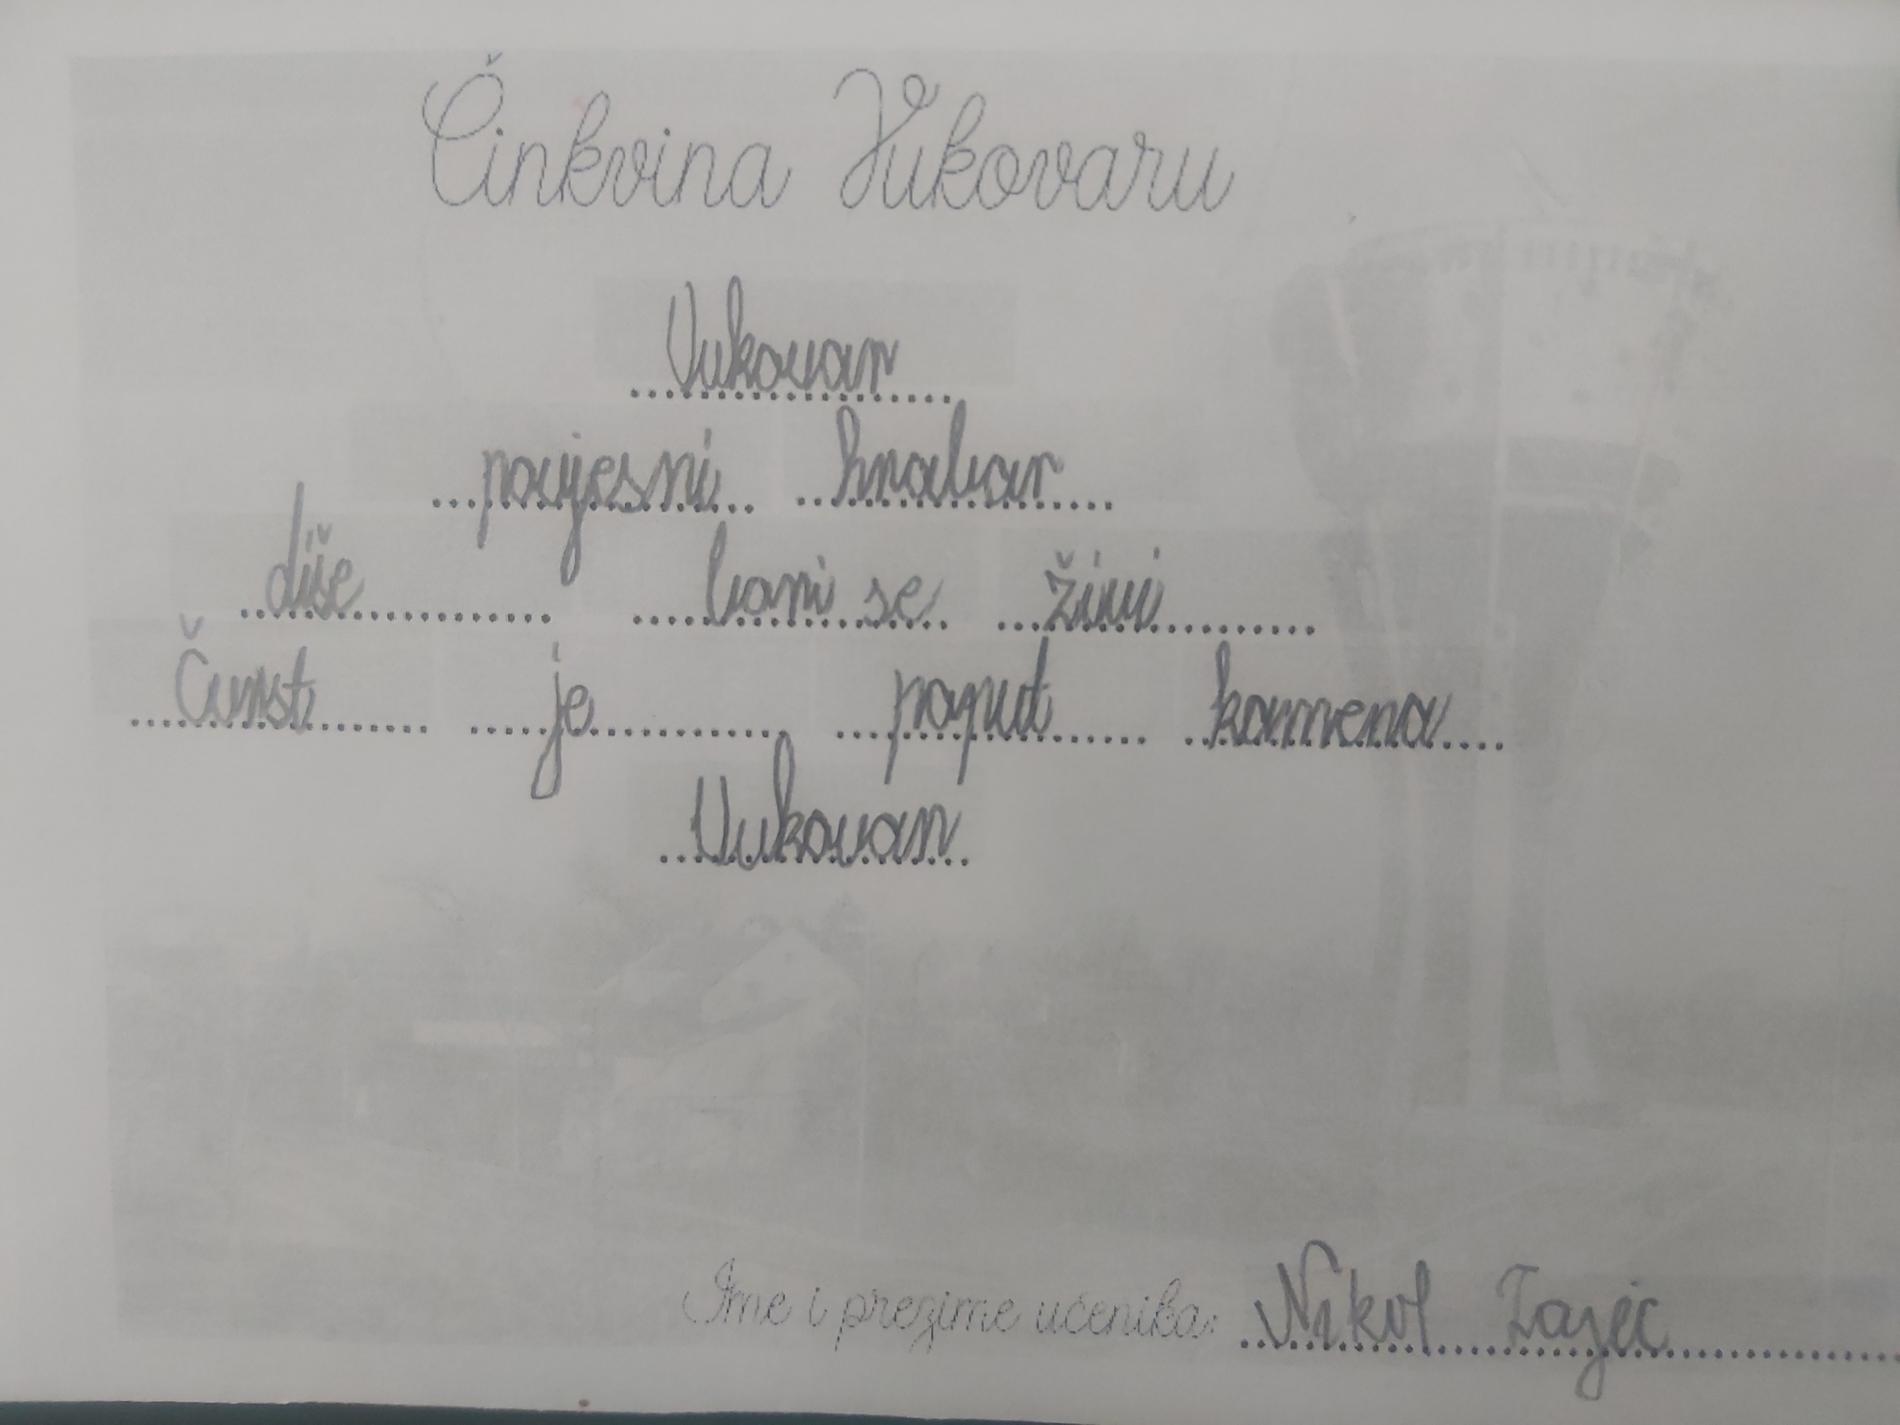 Činkvina Vukovaru
Vukovar
povjesni hrabar
diše bori se živi
Čvrst je poput kamena
Vukovar
Ime i prezime učenika: Nikol Zajec